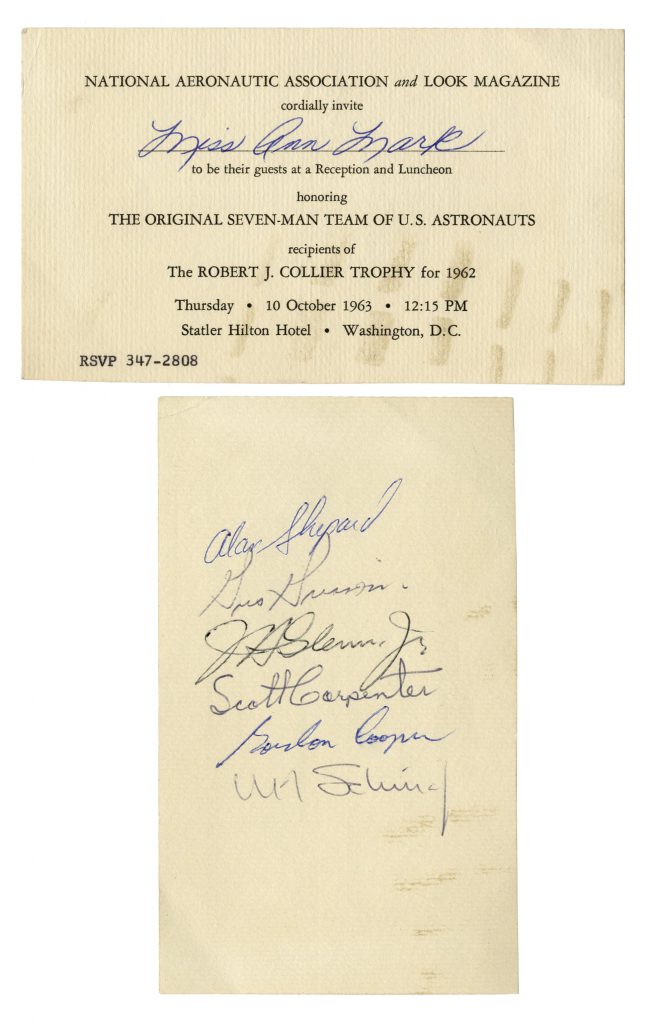 NATIONAL AERONAUTIC ASSOCIATION and LOOK MAGAZINE
cordially invite
Miss Ann Mark
to be their guests at a Reception and Luncheon
honoring
THE ORIGINAL SEVEN-MAN TEAM OF U.S. ASTRONAUTS
recipients of
The ROBERT J. COLLIER TROPHY for 1962
Thursday • 10 October 1963 • 12:15 PM
Statler Hilton Hotel • Washington, D.C.
RSVP 347-2808
Alan Shepard
Gus Grissom
J H Glenn, Jr.
Scott Carpenter
Gordon Cooper
W M Schirra